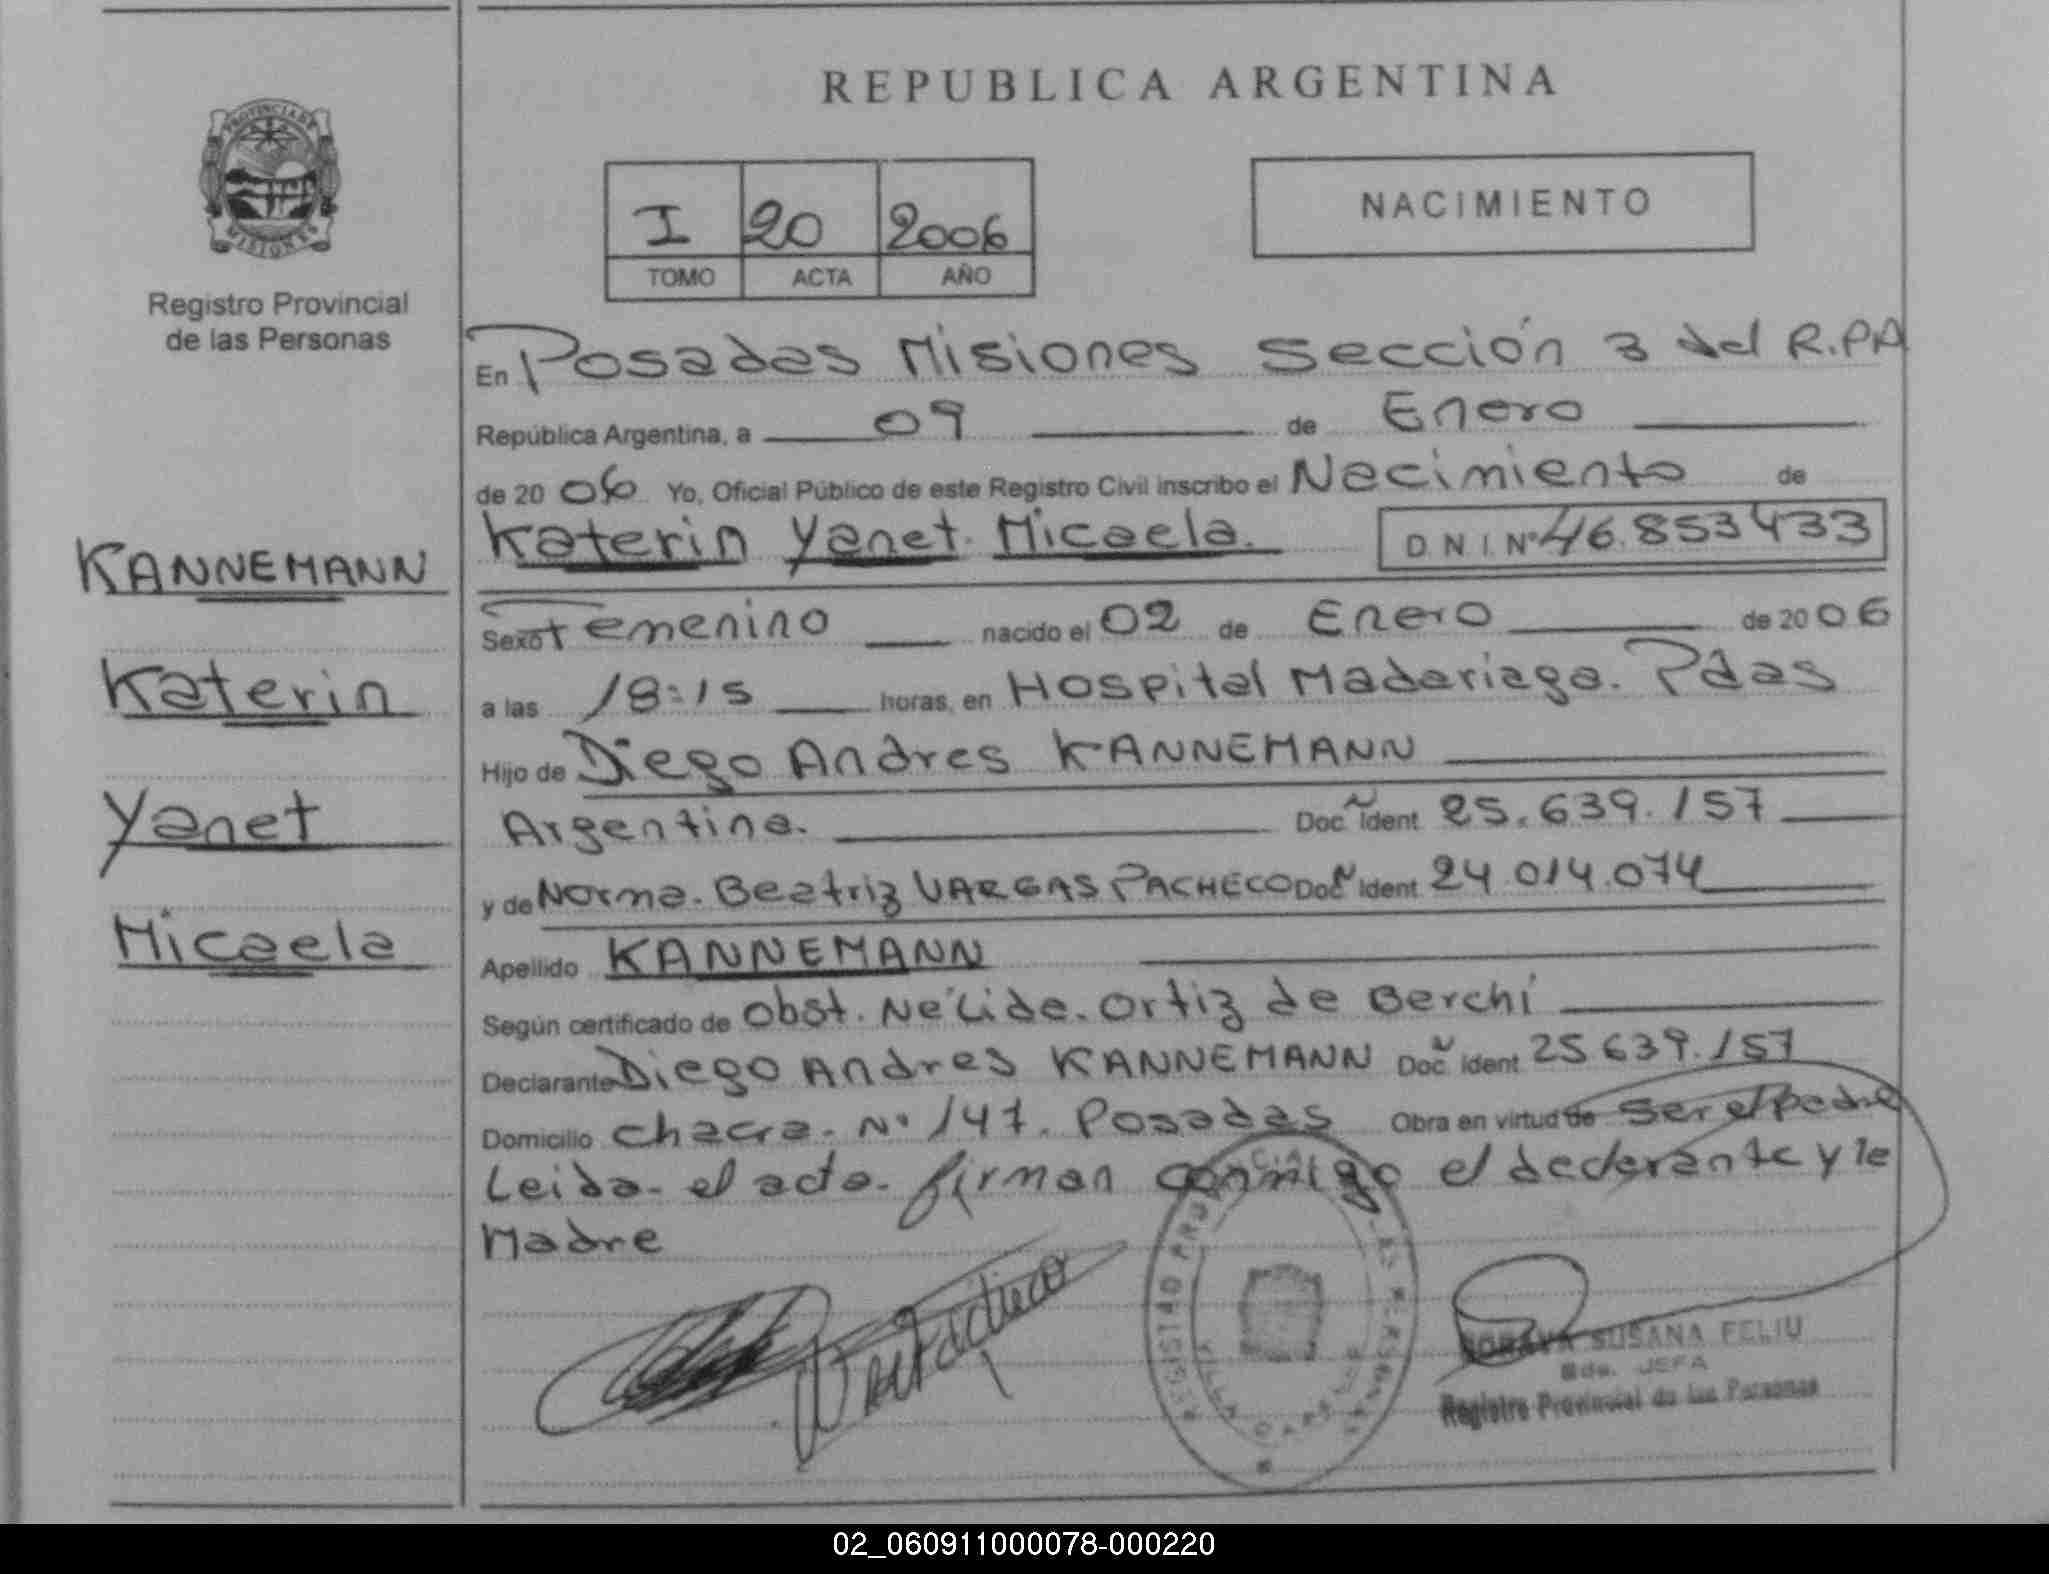 PROVINCIA DE
MISIONES
Registro Provincial
de las Personas
KANNEMANN
Katerin
Yanet
Micaela
REPUBLICA ARGENTINA
I 20 2006
TOMO ACTA AÑO
NACIMIENTO
En Posadas Misiones Sección 3 del R.P.
República Argentina, a 09 de Enero
de 20 06 Yo, Oficial Público de este Registro Civil inscribo el Nacimiento de
Katerin Yanet Micaela. D.N.I. Nº 46.853433
Sexo Femenino nacido el 02 de Enero de 20 06
a las 18:15 horas, en Hospital Madariaga. Pdas
Hijo de Diego Andres KANNEMANN
Argentina. Doc. Ident 25.639.157
y de Norma Beatriz VARGAS PACHECO Doc. Ident 24.014.074
Apellido KANNEMANN
Según certificado de Obst. Nélida Ortiz de Berchi
Declarante Diego Andres KANNEMANN Doc. Ident 25.639.157
Domicilio Chacra Nº 147. Posadas Obra en virtud de ser el padre
Leida el acta firman conmigo el declarante y la
Madre
SORAYA SUSANA FELIU
JEFA
Registro Provincial de las Personas
02_060911000078-000220